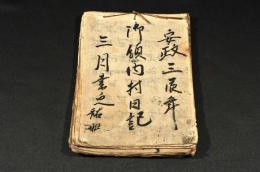 安政三辰年
御領内村日記
三月